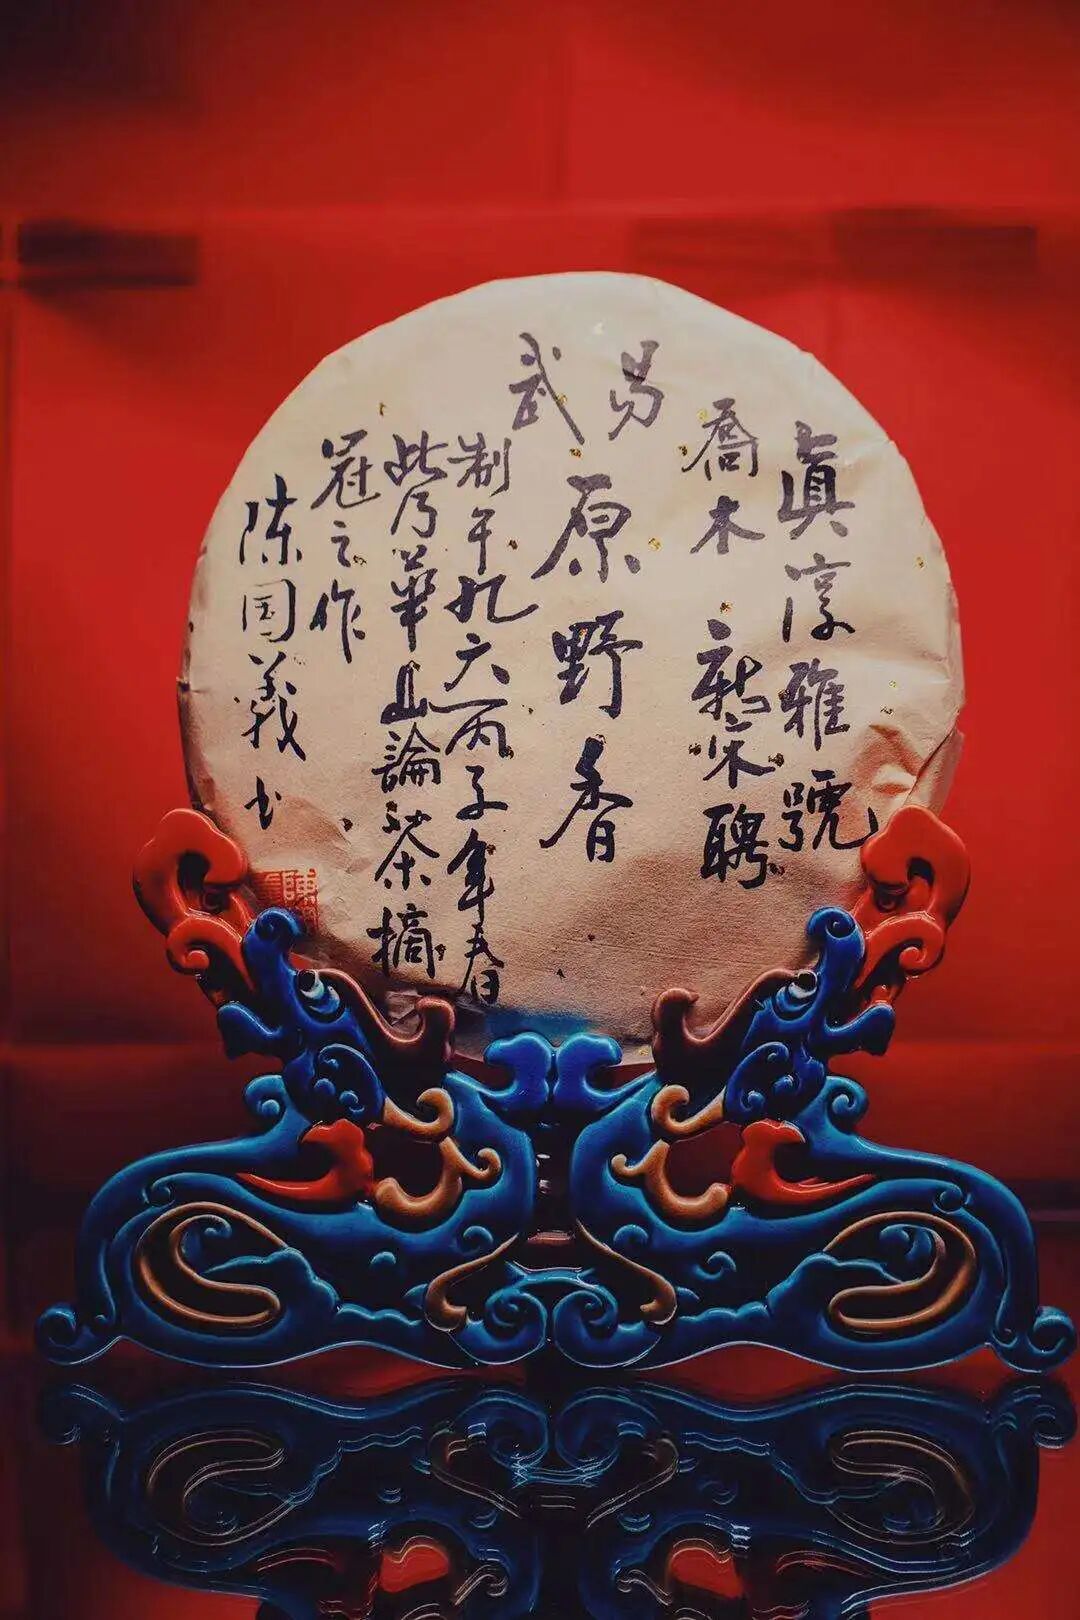 真淳雅號
喬木
聘
易武
原野香
制于九六丙子年春
此乃華山論茶摘
冠之作
陈国義书
陳